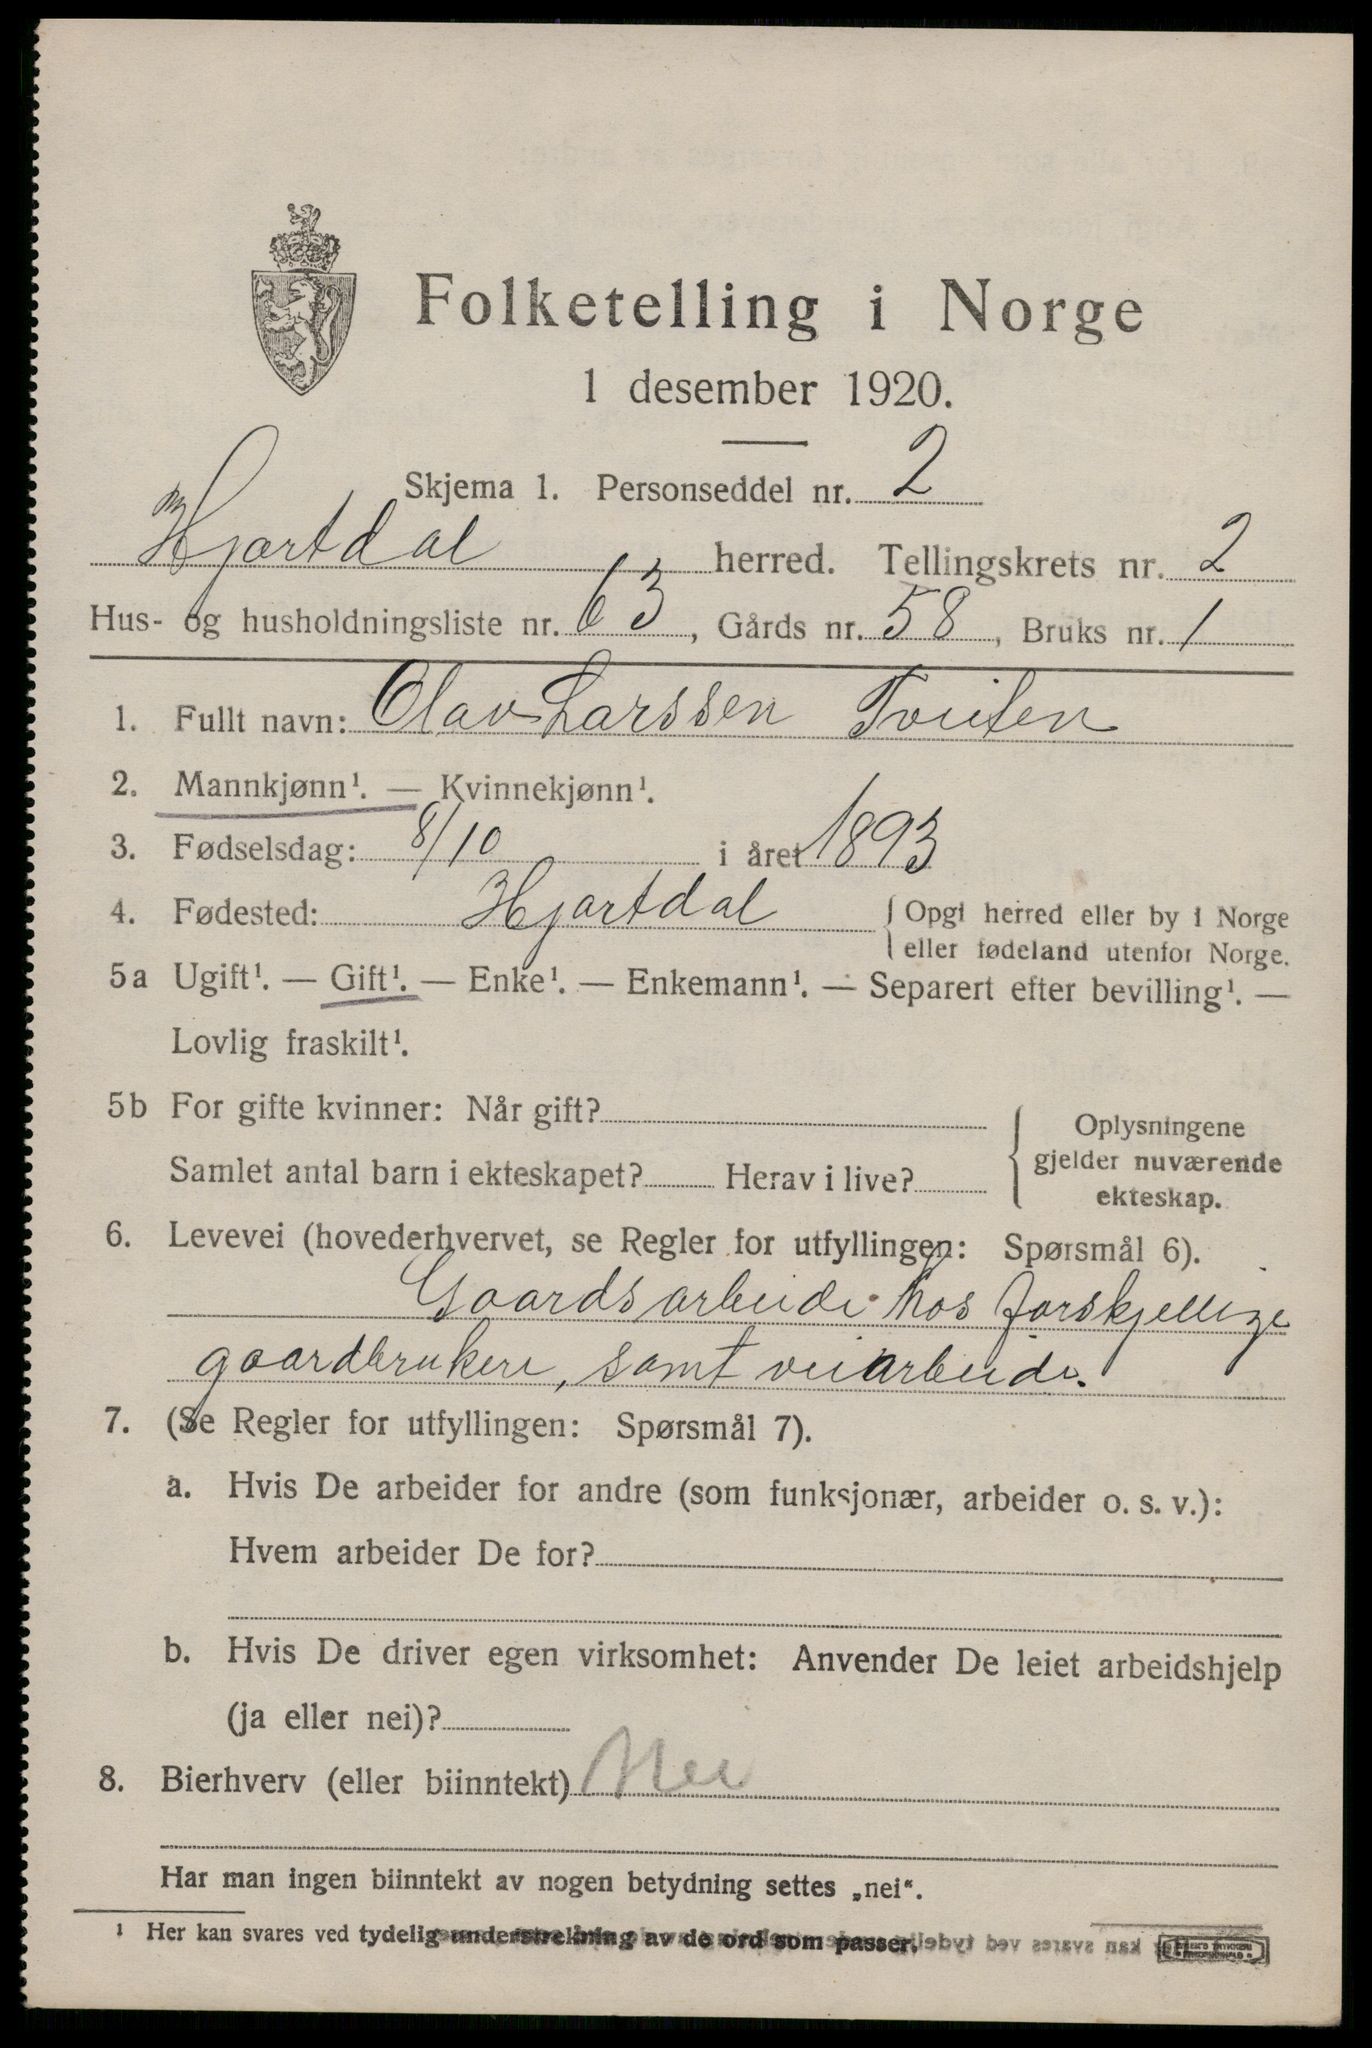 Folketelling i Norge
1 desember 1920.
Skjema 1. Personseddel nr. 2
Hjartdal herred. Tellingskrets nr. 2
Hus- og husholdningsliste nr. 63, Gårds nr. 58, Bruks nr. 1
1. Fullt navn: Olav Larssen Tveiten
2. Mannkjønn¹. — Kvinnekjønn¹.
3. Fødselsdag: 8/10 i året 1893
4. Fødested: Hjartdal { Opgi herred eller by i Norge
eller fødeland utenfor Norge.
5a Ugift¹. — Gift¹. — Enke¹. — Enkemann¹. — Separert efter bevilling¹. —
Lovlig fraskilt¹.
5b For gifte kvinner: Når gift?
Samlet antal barn i ekteskapet? Herav i live?
{ Oplysningene
gjelder nuværende
ekteskap.
6. Levevei (hovederhvervet, se Regler for utfyllingen: Spørsmål 6).
Gaardsarbeide hos forskjellige
gaardbrukere, samt veiarbeide.
7. (Se Regler for utfyllingen: Spørsmål 7).
a. Hvis De arbeider for andre (som funksjonær, arbeider o. s. v.):
Hvem arbeider De for?
b. Hvis De driver egen virksomhet: Anvender De leiet arbeidshjelp
(ja eller nei)?
8. Bierhverv (eller biinntekt) Nei
Har man ingen biinntekt av nogen betydning settes „nei“.
¹ Her kan svares ved tydelig understrekning av de ord som passer.